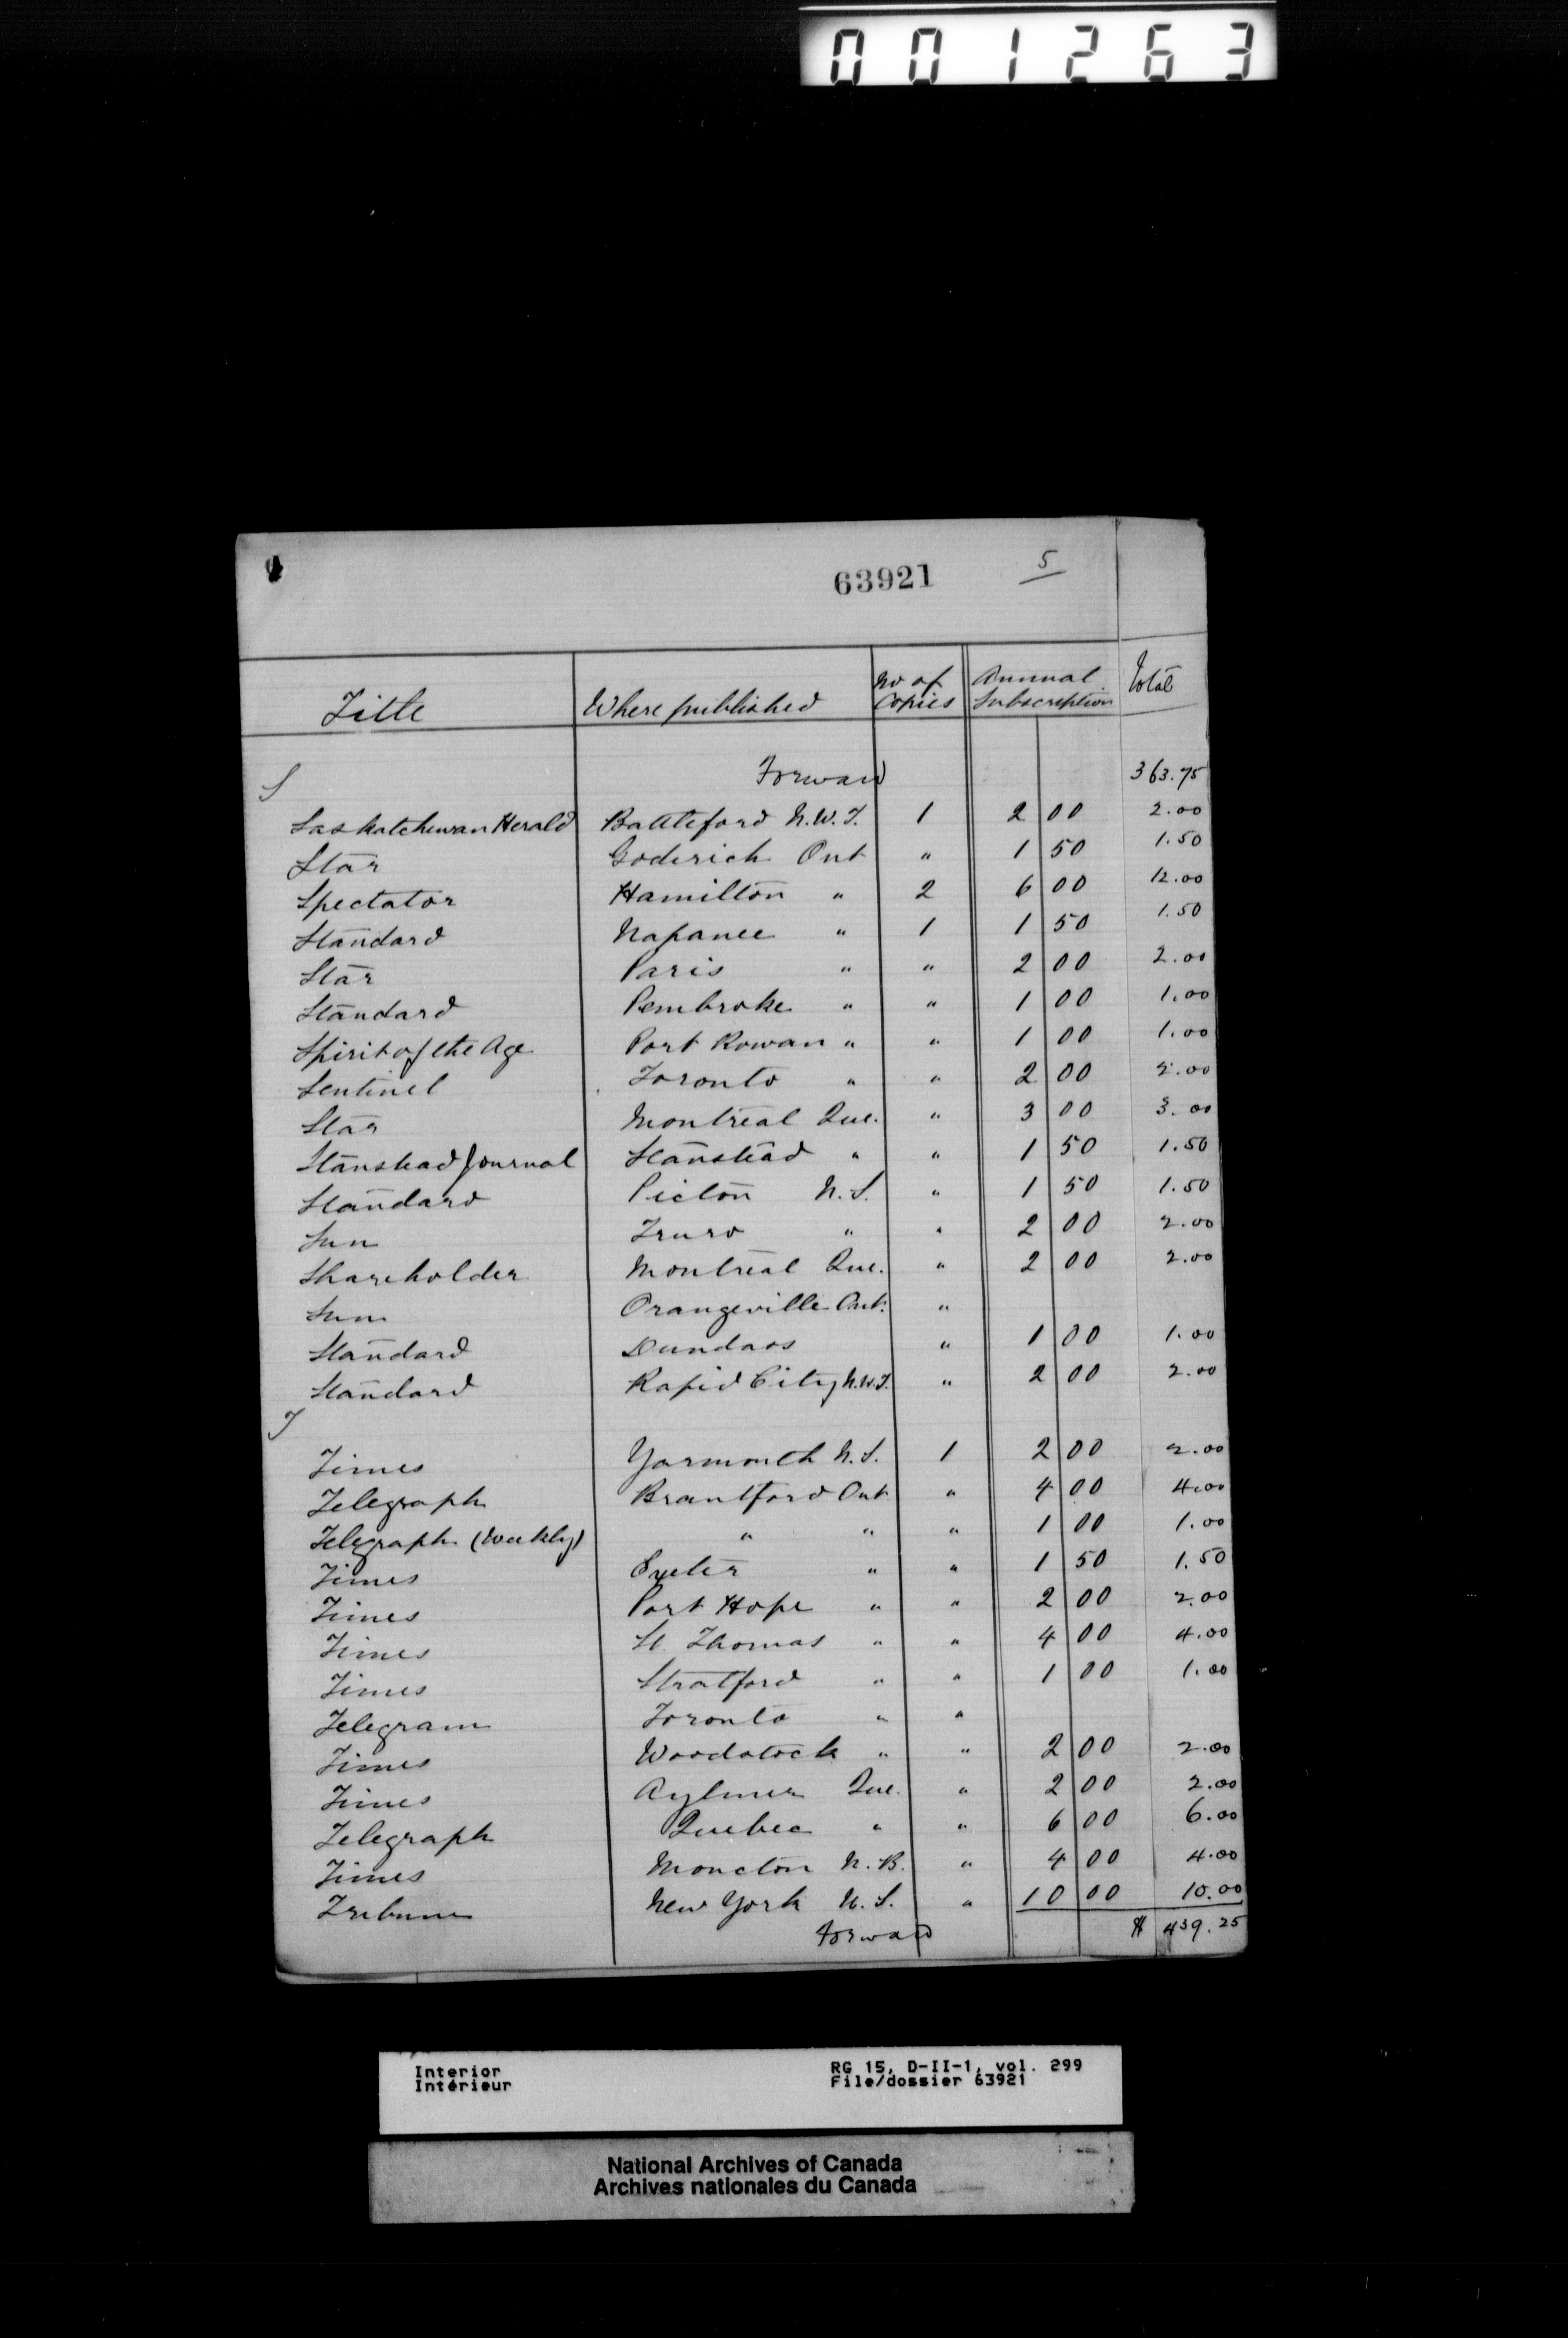 001263
63921 5
Title Where published No of Copies Annual Subscription Total
S Forward 363.75
Saskatchewan Herald Battleford N.W.T. 1 2 00 2.00
Star Goderich Ont " 1 50 1.50
Spectator Hamilton " 2 6 00 12.00
Standard Napanee " 1 1 50 1.50
Star Paris " " 2 00 2.00
Standard Pembroke " " 1 00 1.00
Spirit of the Age Port Rowan " " 1 00 1.00
Sentinel Toronto " " 2 00 2.00
Star Montreal Que. " 3 00 3.00
Stanstead Journal Stanstead " " 1 50 1.50
Standard Picton N.S. " 1 50 1.50
Sun Truro " " 2 00 2.00
Shareholder Montreal Que. " 2 00 2.00
Sun Orangeville Ont. "
Standard Dundas " 1 00 1.00
Standard Rapid City N.W.T. " 2 00 2.00
T
Times Yarmouth N.S. 1 2 00 2.00
Telegraph Brantford Ont " 4 00 4.00
Telegraph (Weekly) " " " 1 00 1.00
Times Exeter " " 1 50 1.50
Times Port Hope " " 2 00 2.00
Times St. Thomas " " 4 00 4.00
Times Stratford " " 1 00 1.00
Telegram Toronto " "
Times Woodstock " " 2 00 2.00
Times Aylmer Que. " 2 00 2.00
Telegraph Quebec " " 6 00 6.00
Times Moncton N.B. " 4 00 4.00
Tribune New York U.S. " 10 00 10.00
Forward $ 439.25
Interior RG 15, D-II-1, vol. 299
Intérieur File/dossier 63921
National Archives of Canada
Archives nationales du Canada